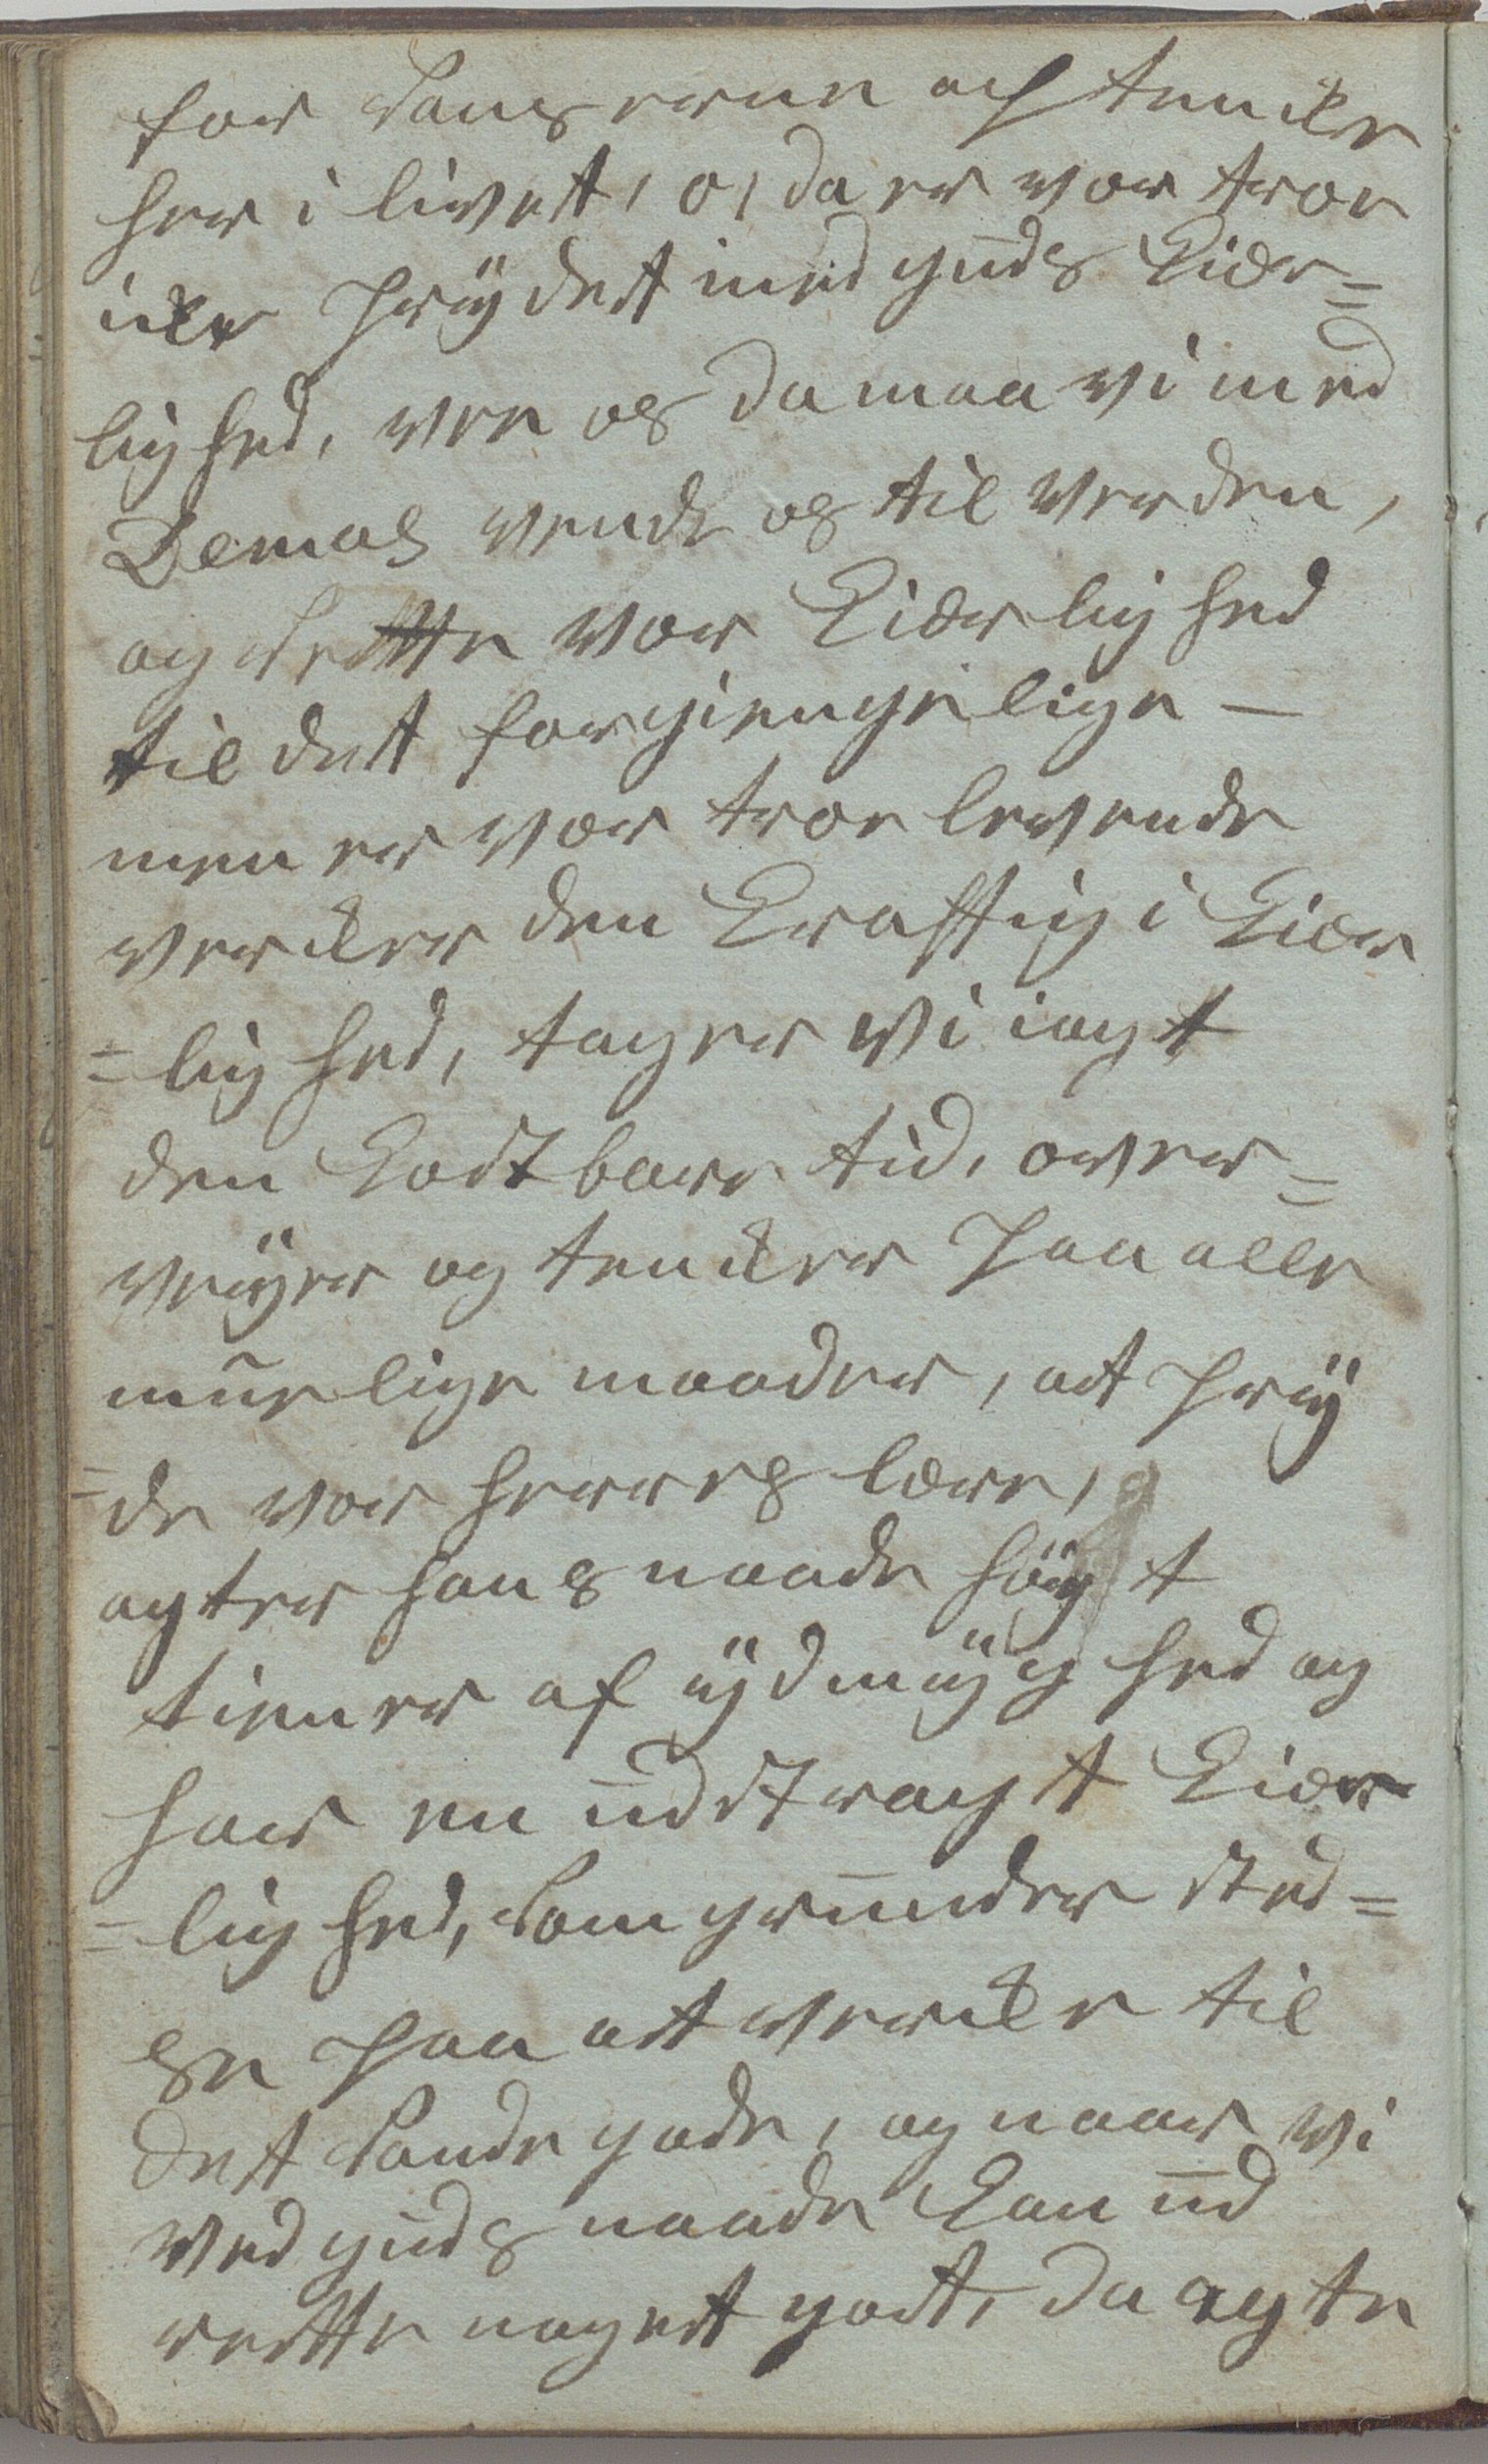 for Sanserne og tencke
her i livett, o, da er vor troe
icke prÿdett med guds Kiær=
lighed, vee os da maa vi med
Demas vende os til verden,
og sette vor Kiærlighed
til dett forgiengelige —
men er vor troe levende
vercker den Kraftig i Kiær
=lighed, tager vi iagt
den Kostbare tid, over=
veÿer og tencker paa alle
muelige maader, at prÿ
=de vor herres lære,
agter hans naade höÿt
tiener af ÿdmÿghed og
har en udstragt Kiær
=lighed, som grunder sted=
se paa att vercke til
dett sande gode, og naar vi
ved guds naade Kan ud
rette nogett gott, da agte